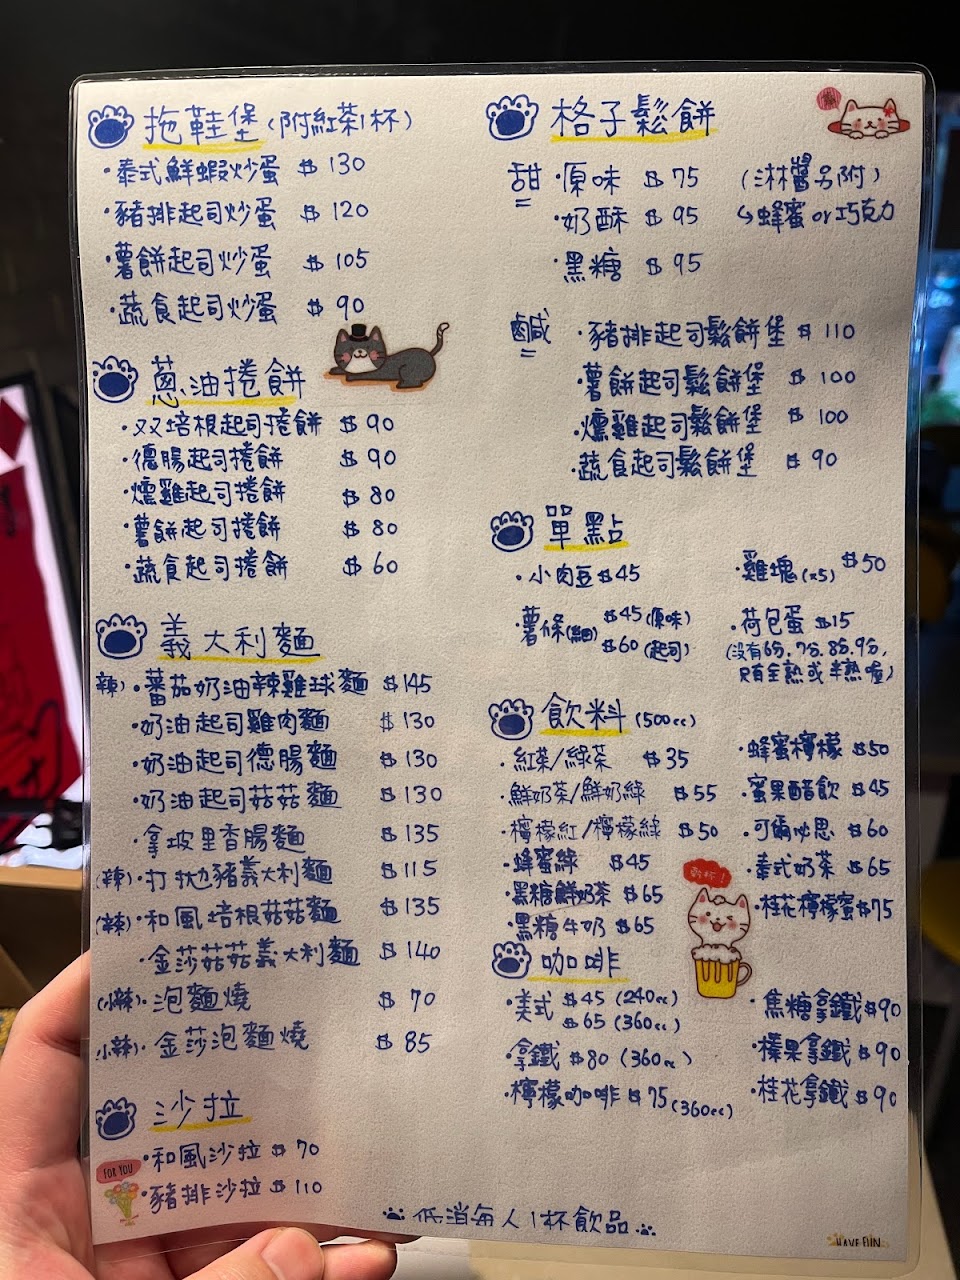 拖鞋堡(附紅茶1杯)
·泰式鮮蝦炒蛋 $130
·豬排起司炒蛋 $120
·薯餅起司炒蛋 $105
·蔬食起司炒蛋 $90
蔥油捲餅
·双培根起司捲餅 $90
·德腸起司捲餅 $90
·燻雞起司捲餅 $80
·薯餅起司捲餅 $80
·蔬食起司捲餅 $60
義大利麵
辣)·蕃茄奶油辣雞球麵 $145
·奶油起司雞肉麵 $130
·奶油起司德腸麵 $130
·奶油起司菇菇麵 $130
·拿坡里香腸麵 $135
(辣)·打拋豬義大利麵 $115
(辣)·和風培根菇菇麵 $135
·金莎菇菇義大利麵 $140
(小辣)·泡麵燒 $70
小辣)·金莎泡麵燒 $85
沙拉
FOR YOU
·和風沙拉 $70
·豬排沙拉 $110
格子鬆餅
甜 ·原味 $75 (淋醬另附)
·奶酥 $95 ↳蜂蜜or巧克力
·黑糖 $95
鹹 ·豬排起司鬆餅堡 $110
·薯餅起司鬆餅堡 $100
·燻雞起司鬆餅堡 $100
·蔬食起司鬆餅堡 $90
單點
·小肉豆 $45
·薯條(細) $45(原味)
$60(起司)
·雞塊(x5) $50
·荷包蛋 $15
(沒有6分,7分,8分,9分,
只有全熟或半熟喔)
飲料(500cc)
·紅茶/綠茶 $35
·鮮奶茶/鮮奶綠 $55
·檸檬紅/檸檬綠 $50
·蜂蜜綠 $45
·黑糖鮮奶茶 $65
·黑糖牛奶 $65
·蜂蜜檸檬 $50
·蜜果醋飲 $45
·可爾必思 $60
·泰式奶茶 $65
·桂花檸檬蜜 $75
乾杯!
咖啡
·美式 $45(240cc)
$65(360cc)
·拿鐵 $80(360cc)
·檸檬咖啡 $75(360cc)
·焦糖拿鐵 $90
·榛果拿鐵 $90
·桂花拿鐵 $90
低消每人1杯飲品
HAVE FUN